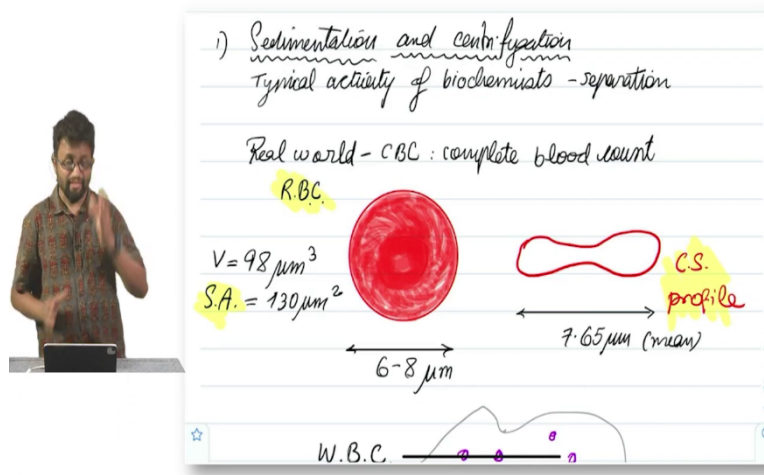 1) Sedimentation and centrifugation
Typical activity of biochemists - separation
Real world - CBC : complete blood count
R.B.C.
V = 98 μm³
S.A. = 130 μm²
C.S.
profile
6-8 μm
7.65 μm (mean)
W.B.C.